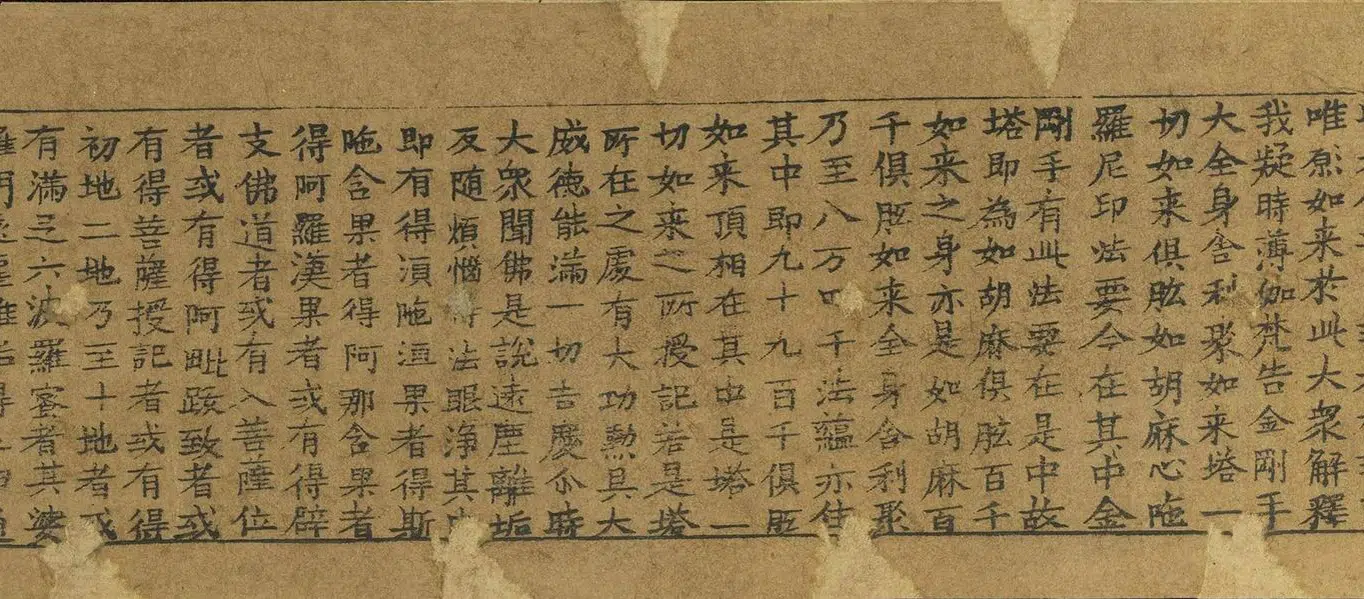 唯願如来於此大衆解釋
我疑時薄伽梵告金剛手
大全身舎利聚如来塔一
切如来俱胝如胡麻心陁
羅尼印法要今在其中金
剛手有此法要在是中故
塔即為如胡麻俱胝百千
如来之身亦是如胡麻百
千俱胝如来全身舎利聚
乃至八万四千法蘊亦住
其中即九十九百千俱胝
如来頂相在其中是塔一
切如来之所授記若是塔
所在之處有大功勲具大
威徳能滿一切吉慶尒時
大衆聞佛是說遠塵離垢
及随煩惱得法眼浄其中
即有得湏陁洹果者得斯
陁含果者得阿那含果者
得阿羅漢果者或有得辟
支佛道者或有入菩薩位
者或有得阿毗跋致者或
有得菩薩授記者或有得
初地二地乃至十地者或
有滿足六波羅蜜者其婆